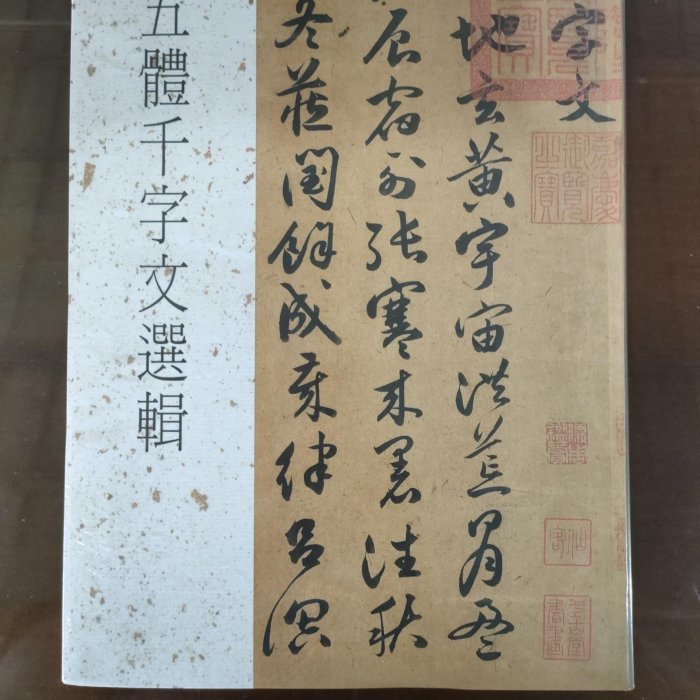 五體千字文選輯
字文
地玄黃宇宙洪荒日月盈
辰宿列張寒來暑往秋
冬藏閏餘成歲律呂調
嘉慶御覽之寶